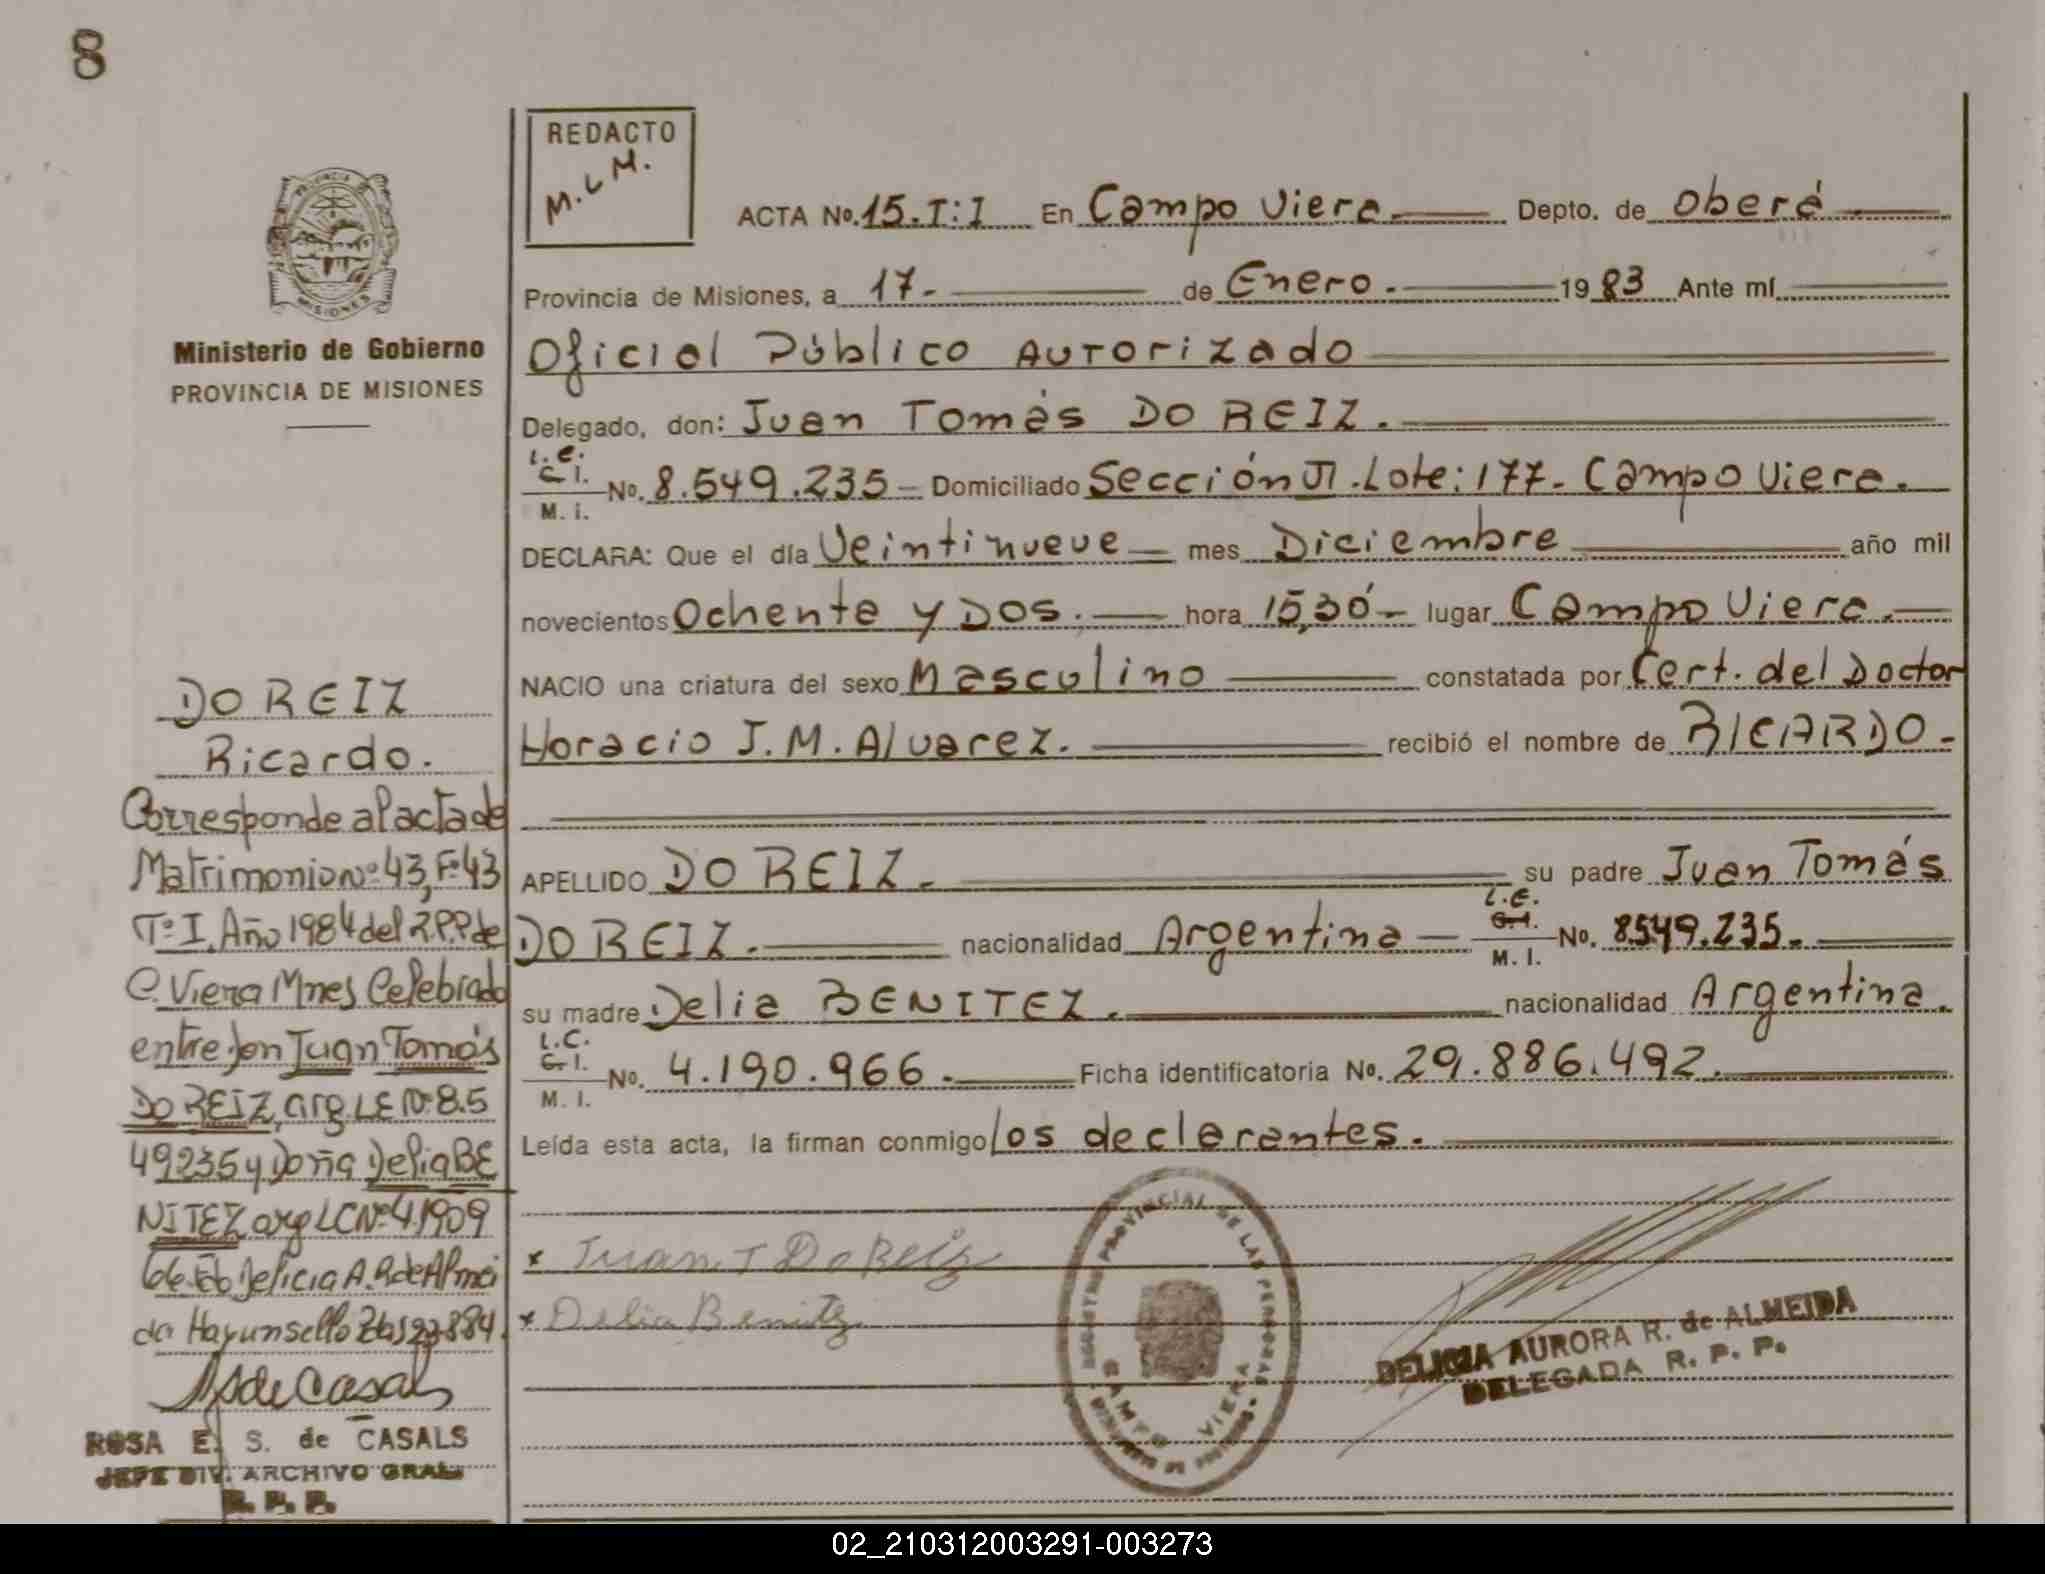 8
REDACTO
M.L.M.
PROVINCIA DE
MISIONES
Ministerio de Gobierno
PROVINCIA DE MISIONES
ACTA No. 15.T:I En Campo Viera. Depto. de Oberá
Provincia de Misiones, a 17- de Enero. 1983 Ante mí
Oficial Público Autorizado
Delegado, don: Juan Tomás DO REIZ.
L.E.
C I.
M. i.
No. 8.549.235 - Domiciliado Sección VI. Lote: 177- Campo Viera.
DECLARA: Que el día Veintinueve mes Diciembre año mil
novecientos Ochenta y Dos. hora 15,30 - lugar Campo Viera.
NACIO una criatura del sexo Masculino constatada por Cert. del Doctor
Horacio J.M. Alvarez. recibió el nombre de RICARDO-
APELLIDO DO REIZ. su padre Juan Tomás
DO REIZ. nacionalidad Argentina - L.E. C.I. M. I. No. 8549.235.
su madre Delia BENITEZ. nacionalidad Argentina.
L.C.
C I.
M. I.
No. 4.190.966. Ficha identificatoria No. 29.886.492.
Leída esta acta, la firman conmigo los declarantes.
x Juan T Do Reiz
x Delia Benitz
REGISTRO PROVINCIAL DE LAS PERSONAS
CAMPO VIERA
DELICIA AURORA R. de ALMEIDA
DELEGADA R. P. P.
DO REIZ
Ricardo.
Corresponde al acta de
Matrimonio Nº 43, Fº 43
Tº I. Año 1984 del R.P.P de
C. Viera Mnes Celebrado
entre don Juan Tomás
DO REIZ, arg. LE Nº 8.5
49235 y Doña Delia BE
NITEZ arg LC Nº 4.1909
66 Fdo Delicia A. R. de Almei
da Hay un sello Pdas 22 8 84.
RS de Casals
ROSA E. S. de CASALS
JEFE DIV. ARCHIVO GRAL
R. P. P.
02_210312003291-003273